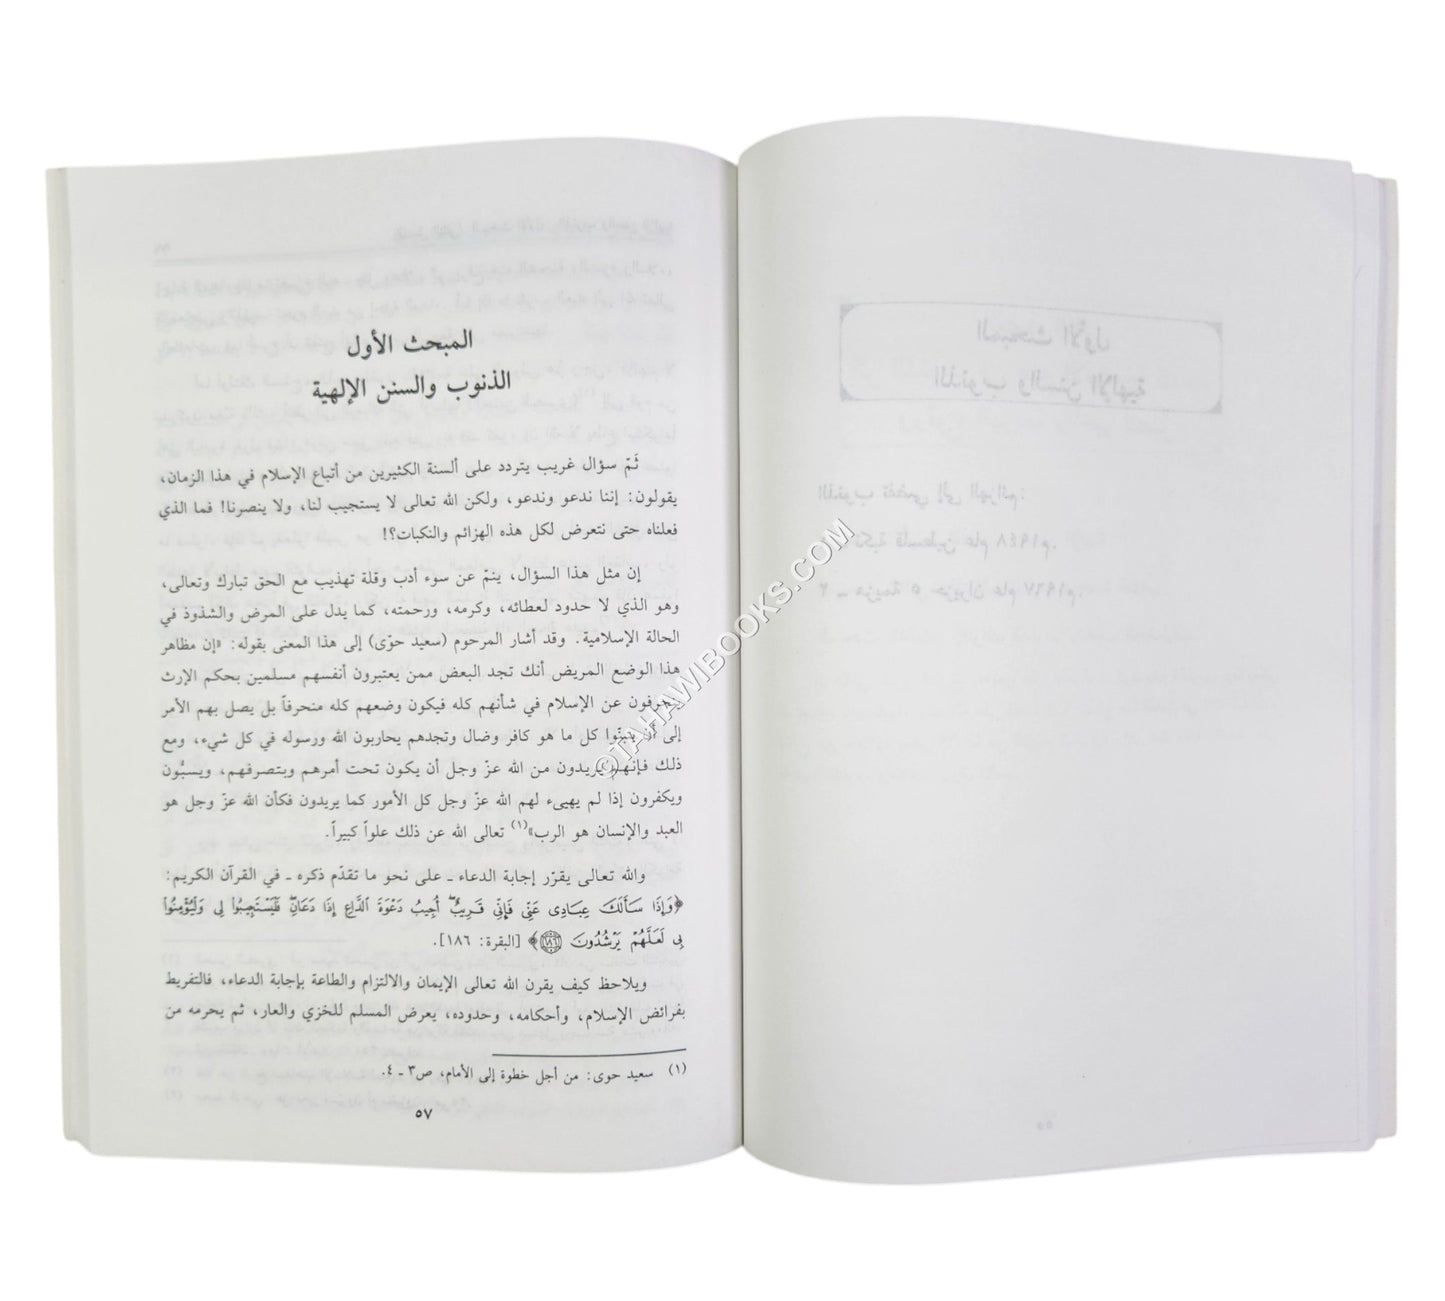 المبحث الأول
الذنوب والسنن الإلهية
ثَمّ سؤال غريب يتردد على ألسنة الكثيرين من أتباع الإسلام في هذا الزمان،
يقولون: إننا ندعو وندعو، ولكن الله تعالى لا يستجيب لنا، ولا ينصرنا! فما الذي
فعلناه حتى نتعرض لكل هذه الهزائم والنكبات؟!
إن مثل هذا السؤال، ينمّ عن سوء أدب وقلة تهذيب مع الحق تبارك وتعالى،
وهو الذي لا حدود لعطائه، وكرمه، ورحمته، كما يدل على المرض والشذوذ في
الحالة الإسلامية. وقد أشار المرحوم (سعيد حوّى) إلى هذا المعنى بقوله: «إن مظاهر
هذا الوضع المريض أنك تجد البعض ممن يعتبرون أنفسهم مسلمين بحكم الإرث
ينحرفون عن الإسلام في شأنهم كله فيكون وضعهم كله منحرفاً بل يصل بهم الأمر
إلى أن يتبنّوا كل ما هو كافر وضال وتجدهم يحاربون الله ورسوله في كل شيء، ومع
ذلك فإنهم يريدون من الله عزّ وجل أن يكون تحت أمرهم وبتصرفهم، ويسبُّون
ويكفرون إذا لم يهيىء لهم الله عزّ وجل كل الأمور كما يريدون فكأن الله عزّ وجل هو
العبد والإنسان هو الرب»(١) تعالى الله عن ذلك علواً كبيراً.
والله تعالى يقرّر إجابة الدعاء ـ على نحو ما تقدّم ذكره ـ في القرآن الكريم:
﴿وَإِذَا سَأَلَكَ عِبَادِى عَنِّى فَإِنِّى قَرِيبٌ أُجِيبُ دَعْوَةَ الدَّاعِ إِذَا دَعَانِ فَلْيَسْتَجِيبُوا لِى وَلْيُؤْمِنُوا
بِى لَعَلَّهُمْ يَرْشُدُونَ ١٨٦﴾ [البقرة: ١٨٦].
ويلاحظ كيف يقرن الله تعالى الإيمان والالتزام والطاعة بإجابة الدعاء، فالتفريط
بفرائض الإسلام، وأحكامه، وحدوده، يعرض المسلم للخزي والعار، ثم يحرمه من
(١) سعيد حوى: من أجل خطوة إلى الأمام، ص٣ ـ ٤.
٥٧
©TAHAWIBOOKS.COM